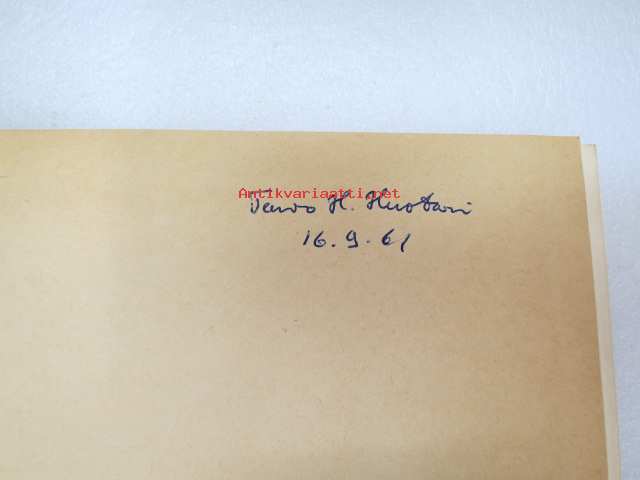 Antikvariaatti.net
Tauno H. Huotari
16.9.61